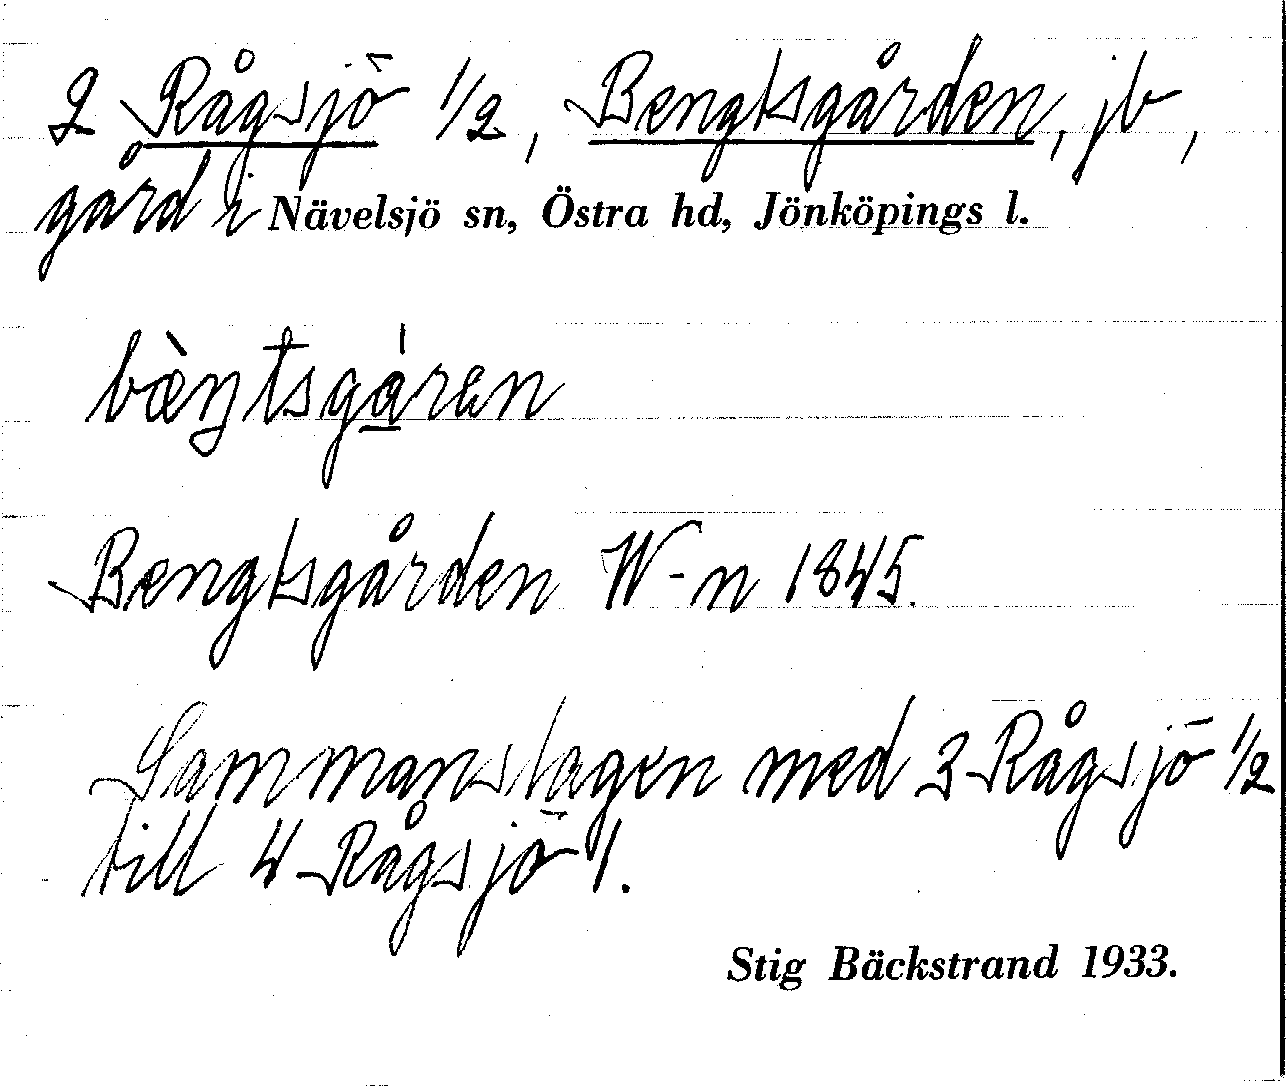 2 Rågsjö 1/2, Bengtsgården, jb,
gård i Nävelsjö sn, Östra hd, Jönköpings l.
bæ̀ŋtsga̲̍ren
Bengtsgården W-n 1845.
Sammanslagen med 3 Rågsjö 1/2
till 4 Rågsjö 1.
Stig Bäckstrand 1933.